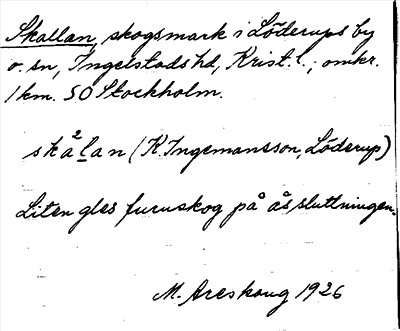 Skallan, skogsmark i Löderups by
o. sn, Ingelstads hd, Krist. l.; omkr.
1 km. SO Stockholm.
skålan (K. Ingemansson, Löderup)
Liten gles furuskog på åssluttningen.
M. Areskoug 1926